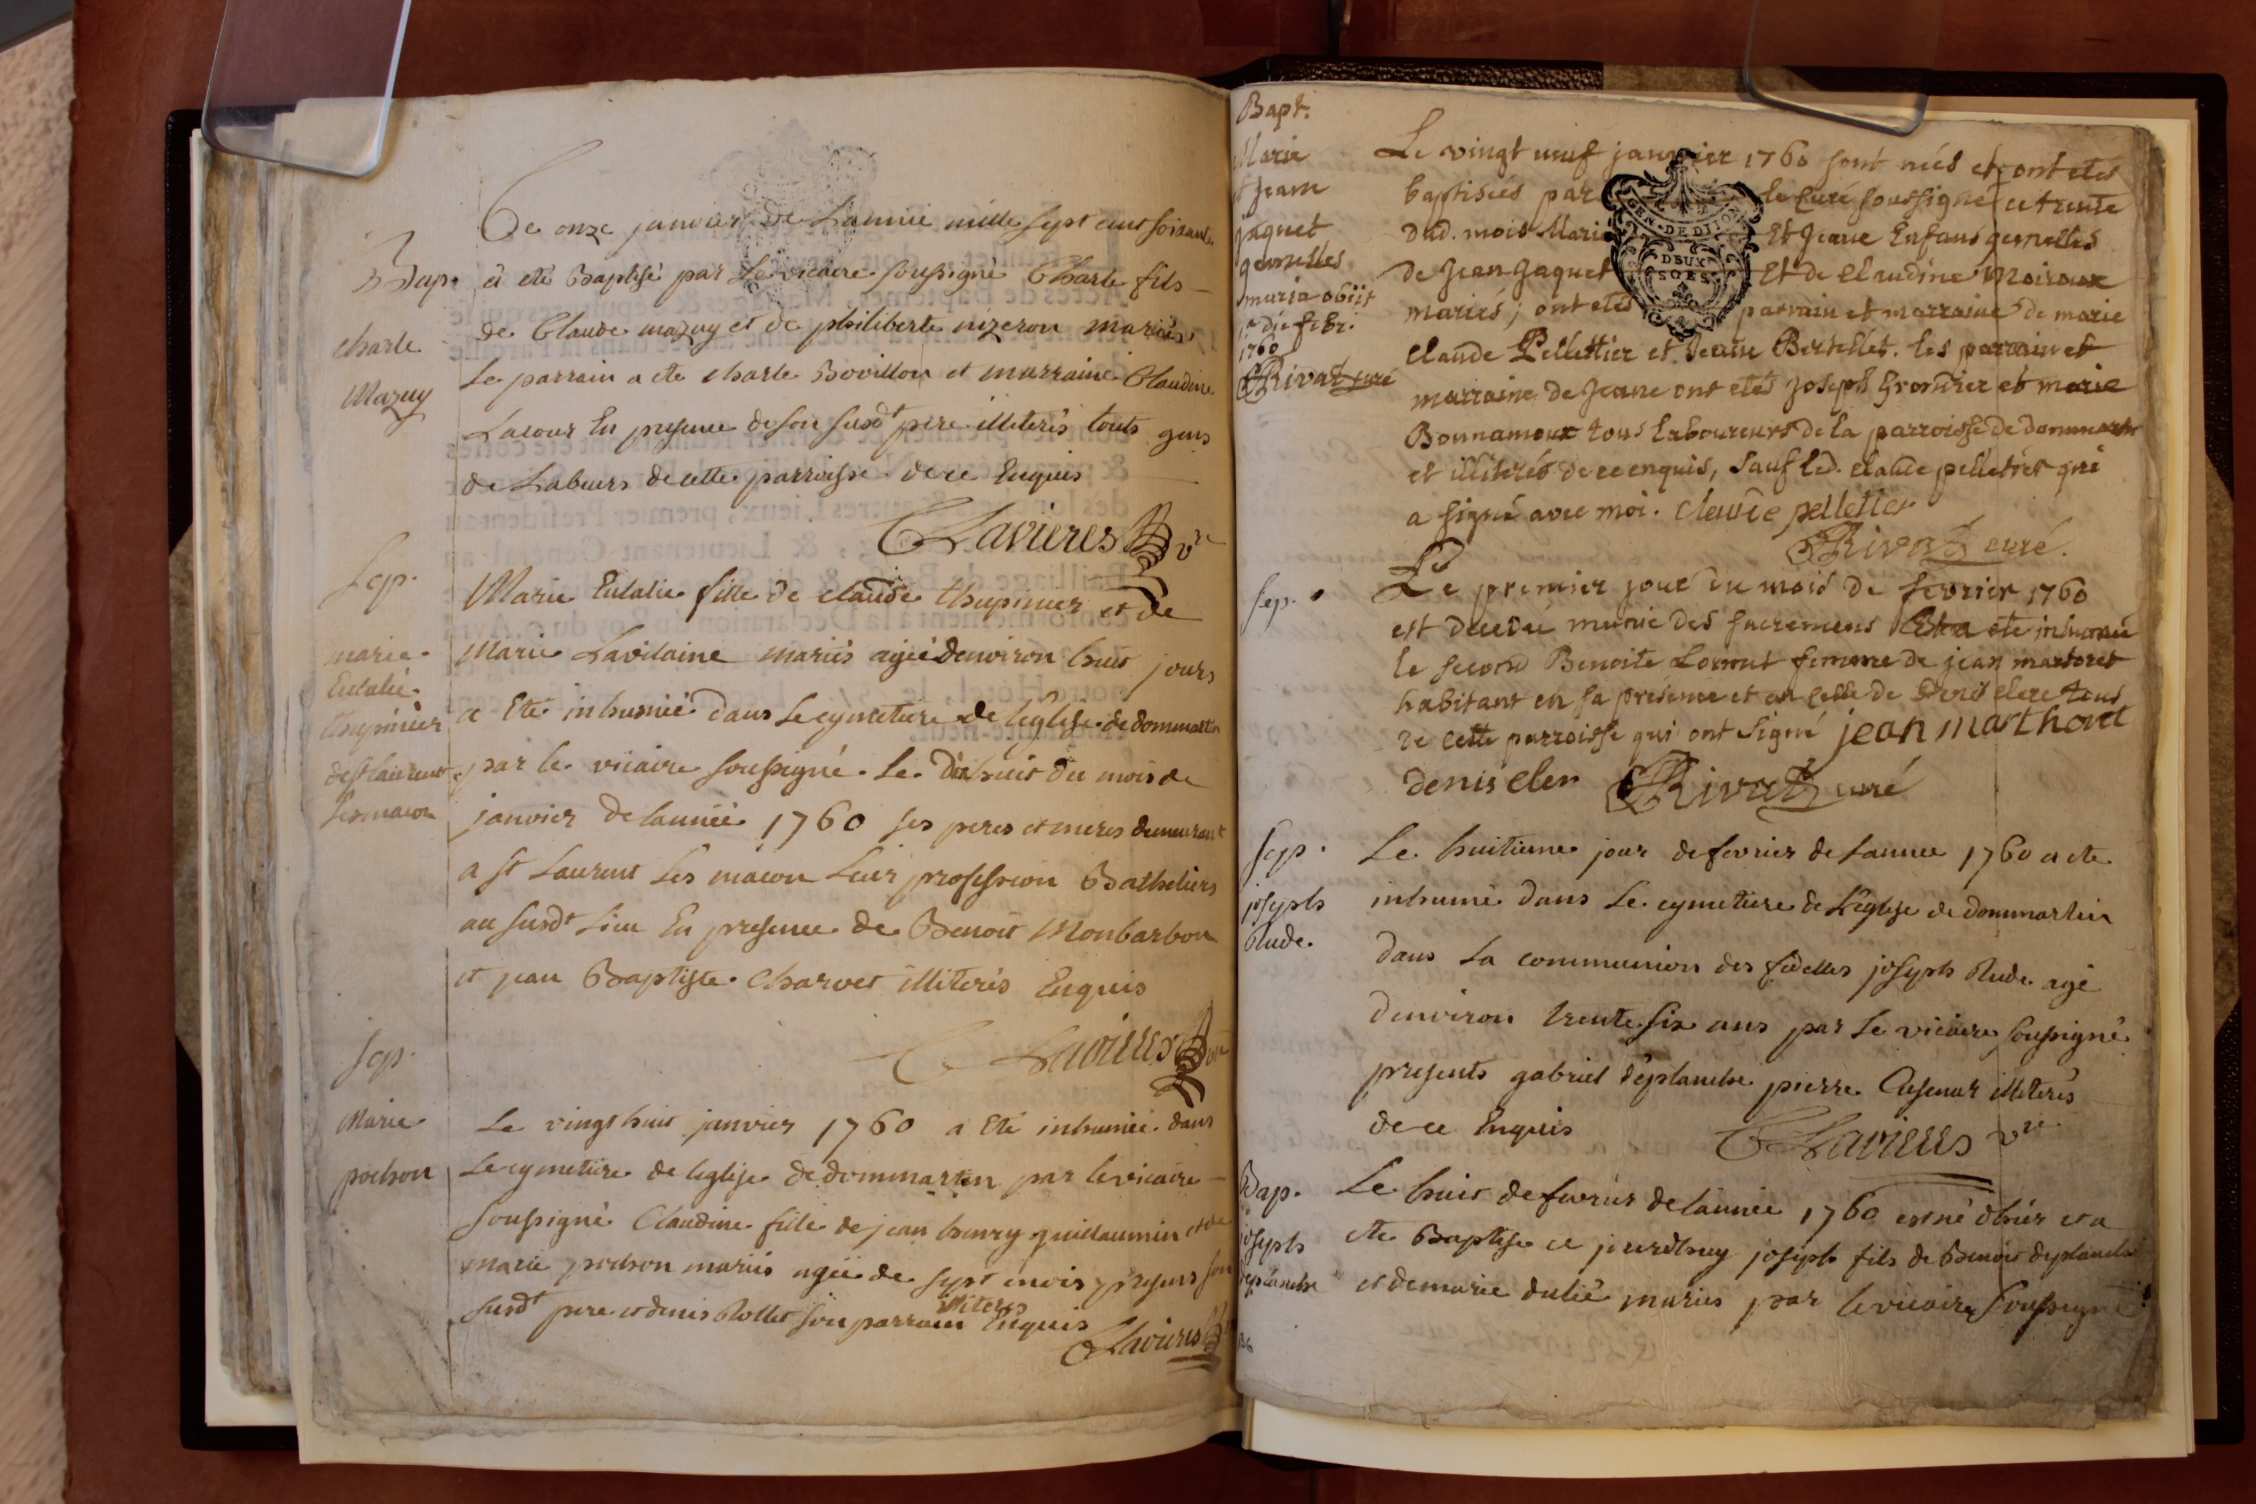 Le onze janvier de L'année mille sept cent soixante
Bap. a eté Baptisé par Le vicaire soussigné Charle fils
charle de Claude mazuy et de philiberte nizeron mariés
Mazuy Le parrain a ete charle Bovillon et marraine Claudine
Lacour En presence de son susdt pere illiterés touts gens
de Labeurs de cette parroisse de ce Enquis
CLavieres vre
Sep. Marie Eulalie fille de claude thupinier et de
marie Marie Lavilaine mariés agée denviron huit jours
Eulalie
thupinier a Eté inhumée dans Le cymetiere de l'eglise de dommartin
de st laurent par le vicaire soussigné Le Dixhuit du mois de
les macon janvier de lannée 1760 ses peres et meres demeurant
a st Laurent Les macon Leur profession Batheliers
au susdt Lieu En presence de Benoit Monbarbon
et jean Baptiste Charvet illiterés Enquis
CLavieres vre
Sep.
Marie Le vingt huit janvier 1760 a Eté inhumée dans
pochon Le cymetiere de leglise de dommartin par le vicaire
soussigné Claudine fille de jean henry guillaumin et de
marie pochon mariés agée de sept mois presens son
susdt pere et denis Rollet son parrain illiterés Enquis
CLavieres
Bapt.
Marie
et Jeane
jaquet
gemelles
maria obiit
1a die febr.
1760
Rivat curé
Le vingt neuf janvier 1760 sont nées et ont etés
baptisées par le Curé soussigné ce trente
dud. mois Marie Et Jeane Enfans gemelles
de Jean Jaquet Et de Claudine Moiroux
mariés; ont etés parrain et marraine de marie
GEN. DE DIJON
DEUX
SOLS
Claude Pellettier et Jeane Bertellet. les parrain et
marraine de Jeane ont etés Joseph Gromier et marie
Bonnamour tous laboureurs de la parroisse de dommartin
et illiterés de ce enquis, sauf led. claude pelletier qui
a signé avec moi. claude pelletier
Rivat curé.
Sep. Le premier jour du mois de fevrier 1760
est decedée munie des sacremens Et a ete inhumée
le second Benoite Lorent femme de jean martoret
habitant en sa presence et en celle de denis clerc tous
de cette parroisse qui ont signé jean marthoret
denis clerc Rivat curé
Sep. Le huitieme jour de fevrier de Lannée 1760 a ete
joseph inhumé dans Le cymetiere de L'eglise de dommartin
Rude. dans La communion des fidelles joseph Rude agé
denviron trente six ans par Le vicaire soussigné
presents gabriel deplanche pierre illiterés
de ce Enquis CLavieres vre
Bap. Le huit de fevrier de lannée 1760 est né d'hier et a
joseph ete Baptisé ce jourdhuy joseph fils de Benoit deplanche
deplanche et de marie mariés par le vicaire soussigné